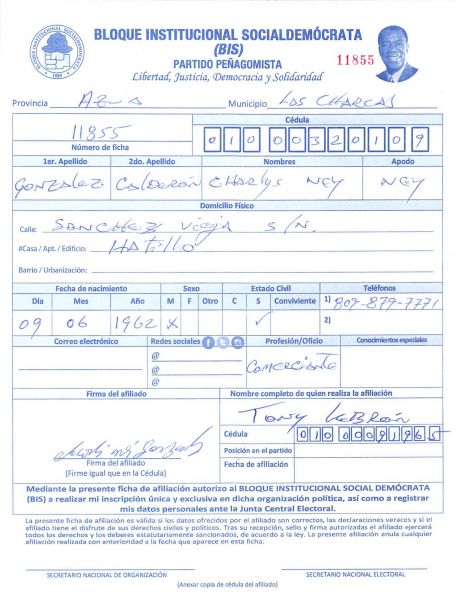 BLOQUE INSTITUCIONAL SOCIALDEMÓCRATA
(BIS)
PARTIDO PEÑAGOMISTA
Libertad, Justicia, Democracia y Solidaridad
11855
Provincia AZUA Municipio LAS CHARCAS
11855
Número de ficha
Cédula
010 0032010 9
1er. Apellido 2do. Apellido Nombres Apodo
GONZALEZ CALDERÓN CHARLYS NEY NEY
Domicilio Físico
Calle: SANCHEZ VIEJA S/N.
#Casa / Apt. / Edificio: HATILLO
Barrio / Urbanización:
Fecha de nacimiento Sexo Estado Civil Teléfonos
Día Mes Año M F Otro C S Conviviente 1) 809-879-7771
09 06 1962 X ✓ 2)
Correo electrónico Redes sociales Profesión/Oficio Conocimientos especiales
@ COMERCIANTE
@
@
Firma del afiliado Nombre completo de quien realiza la afiliación
TONY LEBRÓN
Cédula 010 0091965
Posición en el partido
Fecha de afiliación
Firma del afiliado
(Firme igual que en la Cédula)
Mediante la presente ficha de afiliación autorizo al BLOQUE INSTITUCIONAL SOCIAL DEMÓCRATA
(BIS) a realizar mi inscripción única y exclusiva en dicha organización política, así como a registrar
mis datos personales ante la Junta Central Electoral.
La presente ficha de afiliación es válida si los datos ofrecidos por el afiliado son correctos, las declaraciones veraces y si el
afiliado tiene el disfrute de sus derechos civiles y políticos. Tras su recepción, sello y firma autorizadas el afiliado ejercerá
todos los derechos y los deberes estatutariamente sancionados, de acuerdo a la ley. La presente afiliación anula cualquier
afiliación realizada con anterioridad a la fecha que aparece en esta ficha.
SECRETARIO NACIONAL DE ORGANIZACIÓN SECRETARIO NACIONAL ELECTORAL
(Anexar copia de cédula del afiliado)